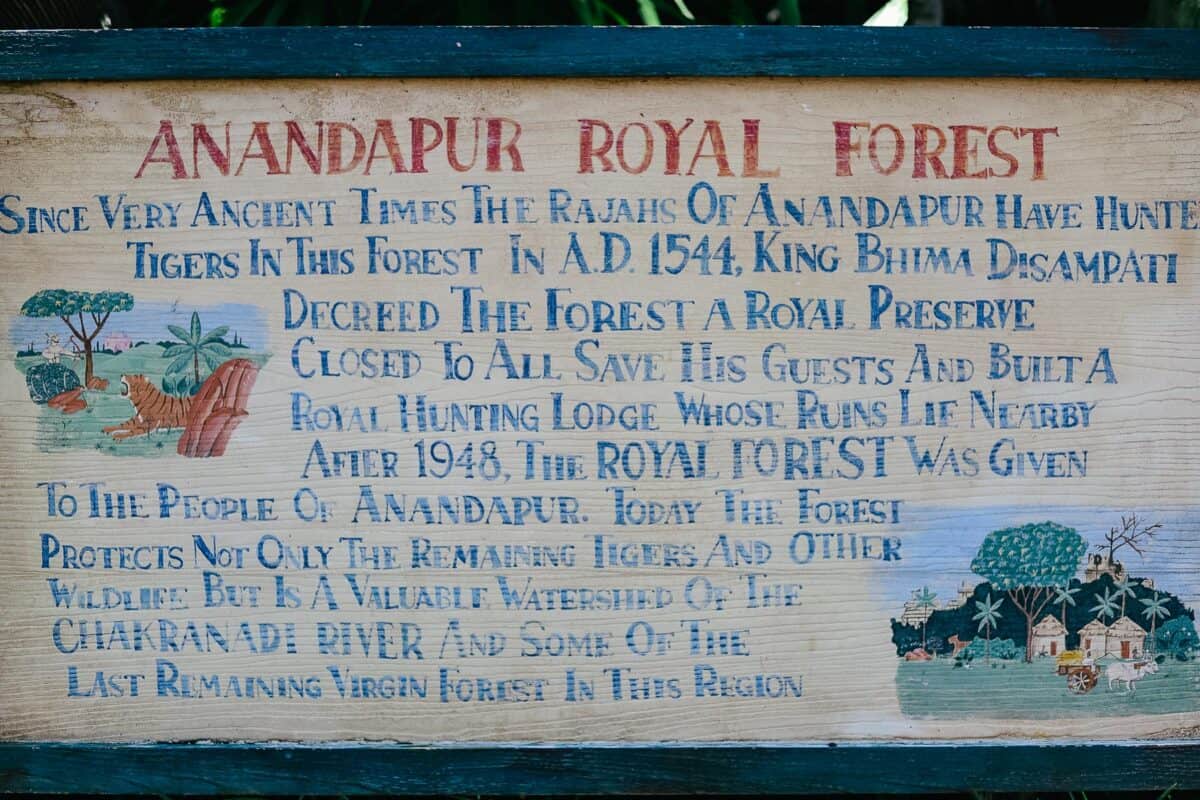 ANANDAPUR ROYAL FOREST
SINCE VERY ANCIENT TIMES THE RAJAHS OF ANANDAPUR HAVE HUNTE
TIGERS IN THIS FOREST IN A.D. 1544, KING BHIMA DISAMPATI
DECREED THE FOREST A ROYAL PRESERVE
CLOSED TO ALL SAVE HIS GUESTS AND BUILT A
ROYAL HUNTING LODGE WHOSE RUINS LIE NEARBY
AFTER 1948, THE ROYAL FOREST WAS GIVEN
TO THE PEOPLE OF ANANDAPUR. TODAY THE FOREST
PROTECTS NOT ONLY THE REMAINING TIGERS AND OTHER
WILDLIFE BUT IS A VALUABLE WATERSHED OF THE
CHAKRANADI RIVER AND SOME OF THE
LAST REMAINING VIRGIN FOREST IN THIS REGION